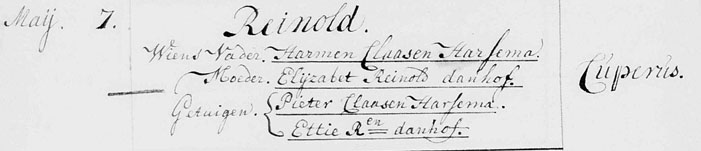 Maij. 7. Reinold.
Wiens Vader. Harmen Claasen Harsema.
Moeder. Elijzabet Reinold danhof.
Getuigen. Pieter Claasen Harsema.
Ettie Ren danhof.
Cuperus.